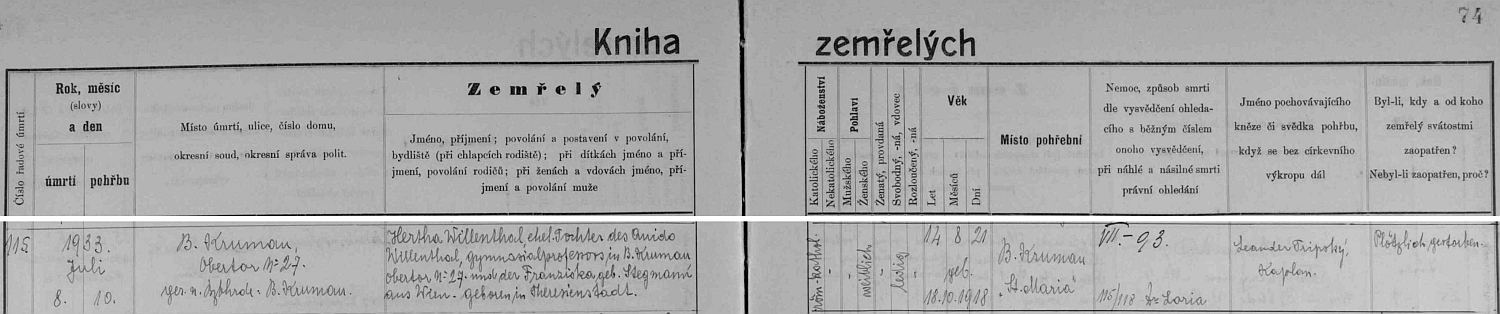 74
Kniha zemřelých
Číslo řadové úmrtí
Rok, měsíc
(slovy)
a den
úmrtí
pohřbu
Místo úmrtí, ulice, číslo domu,
okresní soud, okresní správa polit.
Zemřelý
Jméno, příjmení; povolání a postavení v povolání,
bydliště (při chlapcích rodiště); při dítkách jméno a pří-
jmení, povolání rodičů; při ženách a vdovách jméno, pří-
jmení a povolání muže
Náboženství
Katolického
Nekatolického
Pohlaví
Mužského
Ženského
Ženatý, provdaná
Svobodný, -ná, vdovec
Rozloučený, -ná
Věk
Let
Měsíců
Dní
Místo pohřební
Nemoc, způsob smrti
dle vysvědčení ohleda-
cího s běžným číslem
onoho vysvědčení,
při náhlé a násilné smrti
právní ohledání
Jméno pochovávajícího
kněze či svědka pohřbu,
když se bez církevního
výkropu dál
Byl-li, kdy a od koho
zemřelý svátostmi
zaopatřen?
Nebyl-li zaopatřen, proč?
115
1933.
Juli
8. 10.
B. Kruman,
Obertor No 27.
B. Kruman.
Hertha Willenthal, ehel. Tochter des Guido
Willenthal, Gymnasialprofessors in B. Kruman
Obertor No 27. und der Franziska, geb. Stegmann
aus Wien. Geboren in Theresienstadt.
röm-kathol.
weiblich
ledig
14 8 21
geb.
18.10.1918
B. Kruman
"St. Maria"
VII. - 93.
115/118 Dr Loria
Leander
Kaplan.
Plötzlich gestorben.